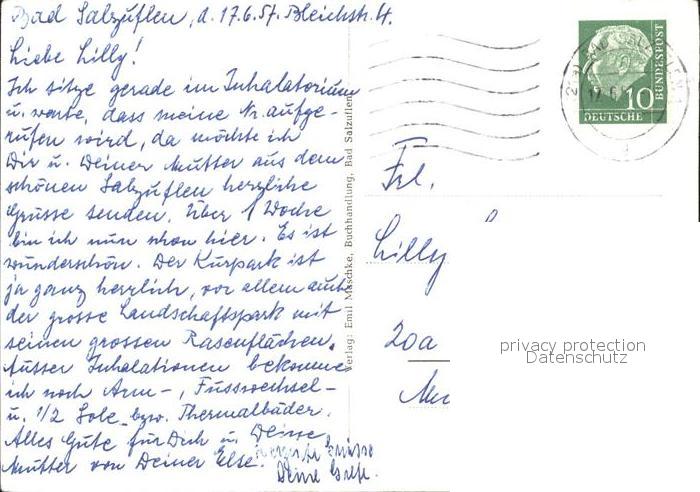 Bad Salzuflen, d. 17.6.57. Bleichstr. 4.
Liebe Lilly!
Ich sitze gerade im Inhalatorium
u. warte, dass meine Nr. aufge-
rufen wird, da möchte ich
Dir u. Deiner Mutter aus dem
schönen Salzuflen herzliche
Grüsse senden. Über 1 Woche
bin ich nun schon hier. Es ist
wunderschön. Der Kurpark ist
ja ganz herrlich, vor allem auch
der grosse Landschaftspark mit
seinen grossen Rasenflächen.
Ausser Inhalationen bekomme
ich noch Arm-, Fusswechsel-
u. 1/2 Sole bzw. Thermalbäder.
Alles Gute für Dich u. Deine
Mutter von Deiner Else.
Herzliche Grüsse
Deine
Verlag: Emil Maschke, Buchhandlung, Bad Salzuflen
10
DEUTSCHE
BUNDESPOST
Frl.
Lilly
20a
privacy protection
Datenschutz